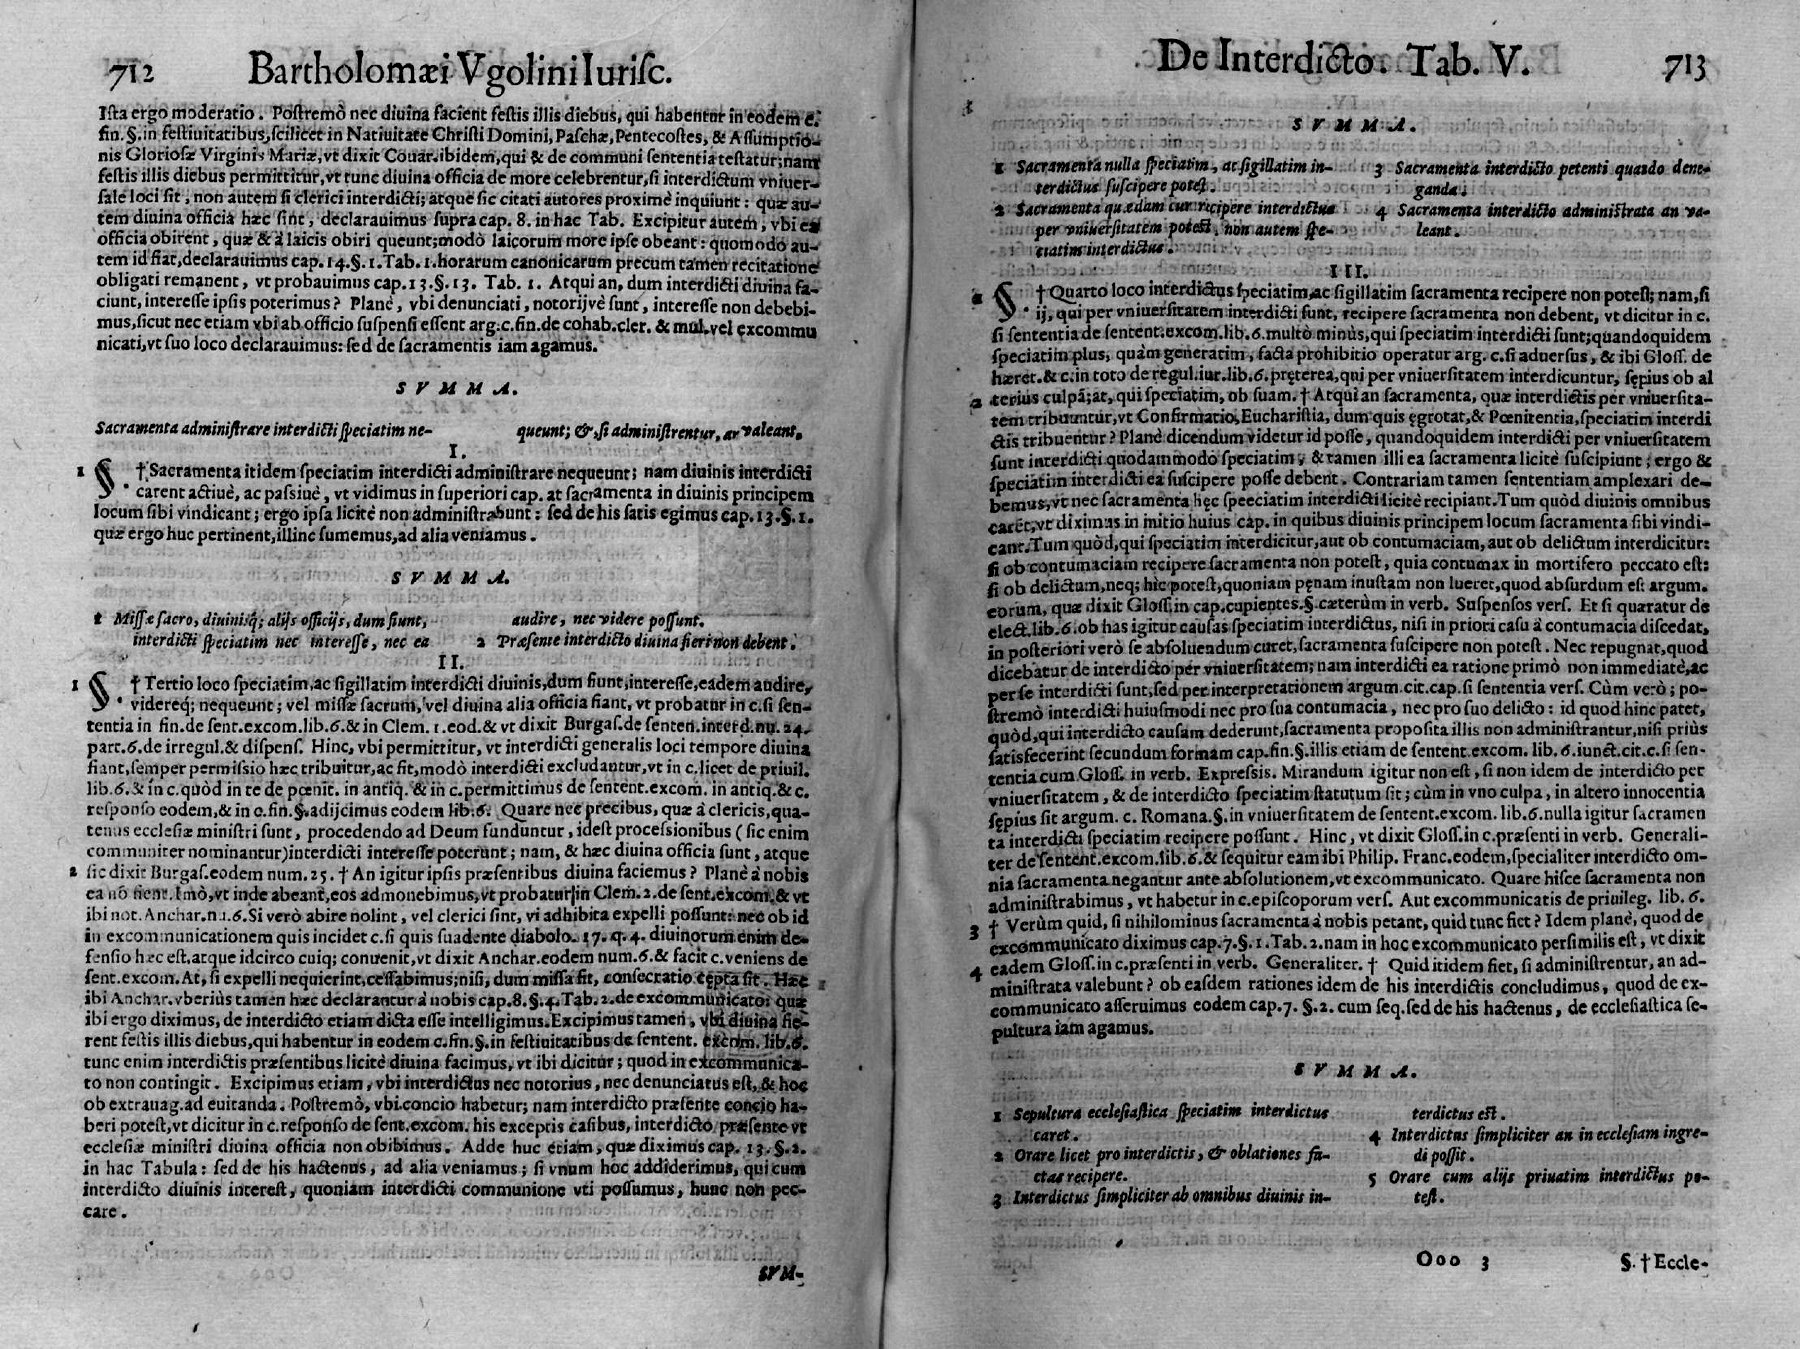 712 Bartholomæi Vgolini Iurisc.
Ista ergo moderatio. Postremò nec diuina facient festis illis diebus, qui habentur in eodem c.
fin. §. in festiuitatibus, scilicet in Natiuitate Christi Domini, Paschæ, Pentecostes, & Assumptio-
nis Gloriosæ Virginis Mariæ, vt dixit Couar. ibidem, qui & de communi sententia testatur; nam
festis illis diebus permittitur, vt tunc diuina officia de more celebrentur, si interdictum vniuer-
sale loci sit, non autem si clerici interdicti; atque sic citati autores proximè inquiunt: quæ au-
tem diuina officia hæc sint, declarauimus supra cap. 8. in hac Tab. Excipitur autem, vbi ea
officia obirent, quæ & à laicis obiri queunt; modò laicorum more ipse obeant: quomodo au-
tem id fiat, declarauimus cap. 14. §. 1. Tab. 1. horarum canonicarum precum tamen recitatione
obligati remanent, vt probauimus cap. 13. §. 13. Tab. 1. Atqui an, dum interdicti diuina fa-
ciunt, interesse ipsis poterimus? Planè, vbi denunciati, notorijvè sunt, interesse non debebi-
mus, sicut nec etiam vbi ab officio suspensi essent arg. c. fin. de cohab. cler. & mul. vel excommu
nicati, vt suo loco declarauimus: sed de sacramentis iam agamus.
SVMMA.
Sacramenta administrare interdicti speciatim ne- queunt; &, si administrentur, an valeant.
I.
1 §. † Sacramenta itidem speciatim interdicti administrare nequeunt; nam diuinis interdicti
carent actiuè, ac passiuè, vt vidimus in superiori cap. at sacramenta in diuinis principem
locum sibi vindicant; ergo ipsa licitè non administrabunt: sed de his satis egimus cap. 13. §. 1.
quæ ergo huc pertinent, illinc sumemus, ad alia veniamus.
SVMMA.
1 Missæ sacro, diuinisq; alijs officijs, dum fiunt, audire, nec videre possunt.
interdicti speciatim nec interesse, nec ea 2 Præsente interdicto diuina fieri non debent.
II.
1 §. † Tertio loco speciatim, ac sigillatim interdicti diuinis, dum fiunt, interesse, eadem audire,
videreq; nequeunt; vel missæ sacrum, vel diuina alia officia fiant, vt probatur in c. si sen-
tentia in fin. de sent. excom. lib. 6. & in Clem. 1. eod. & vt dixit Burgas. de senten. interd. nu. 24.
part. 6. de irregul. & dispens. Hinc, vbi permittitur, vt interdicti generalis loci tempore diuina
fiant, semper permissio hæc tribuitur, ac fit, modò interdicti excludantur, vt in c. licet de priuil.
lib. 6. & in c. quòd in te de pœnit. in antiq. & in c. permittimus de sentent. excom. in antiq. & c.
responso eodem, & in c. fin. §. adijcimus eodem lib. 6. Quare nec precibus, quæ à clericis, qua-
tenus ecclesiæ ministri sunt, procedendo ad Deum funduntur, idest processionibus (sic enim
communiter nominantur) interdicti interesse poterunt; nam, & hæc diuina officia sunt, atque
2 sic dixit Burgas. eodem num. 25. † An igitur ipsis præsentibus diuina faciemus? Planè à nobis
ea nõ fient. Imò, vt inde abeant, eos admonebimus, vt probatur in Clem. 2. de sent. excom. & vt
ibi not. Anchar. n. 16. Si verò abire nolint, vel clerici sint, vi adhibita expelli possunt: nec ob id
in excommunicationem quis incidet c. si quis suadente diabolo. 17. q. 4. diuinorum enim de-
fensio hæc est, atque idcirco cuiq; conuenit, vt dixit Anchar. eodem num. 6. & facit c. veniens de
sent. excom. At, si expelli nequierint, cessabimus; nisi, dum missa fit, consecratio cępta sit. Hæc
ibi Anchar. vberiùs tamen hæc declarantur à nobis cap. 8. §. 4. Tab. 2. de excommunicato: quæ
ibi ergo diximus, de interdicto etiam dicta esse intelligimus. Excipimus tamen, vbi diuina fie-
rent festis illis diebus, qui habentur in eodem c. fin. §. in festiuitatibus de sentent. excom. lib. 6.
tunc enim interdictis præsentibus licitè diuina facimus, vt ibi dicitur; quod in excommunica-
to non contingit. Excipimus etiam, vbi interdictus nec notorius, nec denunciatus est, & hoc
ob extrauag. ad euitanda. Postremò, vbi concio habetur; nam interdicto præsente concio ha-
beri potest, vt dicitur in c. responso de sent. excom. his exceptis casibus, interdicto præsente vt
ecclesiæ ministri diuina officia non obibimus. Adde huc etiam, quæ diximus cap. 13. §. 2.
in hac Tabula: sed de his hactenus, ad alia veniamus; si vnum hoc addiderimus, qui cum
interdicto diuinis interest, quoniam interdicti communione vti possumus, hunc non pec-
care.
SVM-
De Interdicto. Tab. V. 713
SVMMA.
1 Sacramenta nulla speciatim, ac sigillatim in- 3 Sacramenta interdicto petenti quando dene-
terdictus suscipere potest. ganda.
2 Sacramenta quædam cur recipere interdictus 4 Sacramenta interdicto administrata an va-
per vniuersitatem potest, non autem spe- leant.
ciatim interdictus.
III.
1 §. † Quarto loco interdictus speciatim, ac sigillatim sacramenta recipere non potest; nam, si
ij, qui per vniuersitatem interdicti sunt, recipere sacramenta non debent, vt dicitur in c.
si sententia de sentent. excom. lib. 6. multò minùs, qui speciatim interdicti sunt; quandoquidem
speciatim plus, quàm generatim, facta prohibitio operatur arg. c. si aduersus, & ibi Gloss. de
hæret. & c. in toto de regul. iur. lib. 6. pręterea, qui per vniuersitatem interdicuntur, sępius ob al
2 terius culpã; at, qui speciatim, ob suam. † Atqui an sacramenta, quæ interdictis per vniuersita-
tem tribuuntur, vt Confirmatio, Eucharistia, dum quis ęgrotat, & Pœnitentia, speciatim interdi
ctis tribuentur? Planè dicendum videtur id posse, quandoquidem interdicti per vniuersitatem
sunt interdicti quodammodo speciatim, & tamen illi ea sacramenta licitè suscipiunt; ergo &
speciatim interdicti ea suscipere posse debent. Contrariam tamen sententiam amplexari de-
bemus, vt nec sacramenta hęc speeciatim interdicti licitè recipiant. Tum quòd diuinis omnibus
carẽt, vt diximus in initio huius cap. in quibus diuinis principem locum sacramenta sibi vindi-
cant. Tum quòd, qui speciatim interdicitur, aut ob contumaciam, aut ob delictum interdicitur:
si ob contumaciam recipere sacramenta non potest, quia contumax in mortifero peccato est:
si ob delictum, neq; hic potest, quoniam pęnam inustam non lueret, quod absurdum est argum.
eorum, quæ dixit Gloss. in cap. cupientes. §. cæterùm in verb. Suspensos vers. Et si quæratur de
elect. lib. 6. ob has igitur causas speciatim interdictus, nisi in priori casu à contumacia discedat,
in posteriori verò se absoluendum curet, sacramenta suscipere non potest. Nec repugnat, quod
dicebatur de interdicto per vniuersitatem; nam interdicti ea ratione primò non immediatè, ac
per se interdicti sunt, sed per interpretationem argum. cit. cap. si sententia vers. Cùm verò; po-
stremò interdicti huiusmodi nec pro sua contumacia, nec pro suo delicto: id quod hinc patet,
quòd, qui interdicto causam dederunt, sacramenta proposita illis non administrantur, nisi priùs
satisfecerint secundum formam cap. fin. §. illis etiam de sentent. excom. lib. 6. iunct. cit. c. si sen-
tentia cum Gloss. in verb. Expressis. Mirandum igitur non est, si non idem de interdicto per
vniuersitatem, & de interdicto speciatim statutum sit; cùm in vno culpa, in altero innocentia
sępius sit argum. c. Romana. §. in vniuersitatem de sentent. excom. lib. 6. nulla igitur sacramen
ta interdicti speciatim recipere possunt. Hinc, vt dixit Gloss. in c. præsenti in verb. Generali-
ter de sentent. excom. lib. 6. & sequitur eam ibi Philip. Franc. eodem, specialiter interdicto om-
nia sacramenta negantur ante absolutionem, vt excommunicato. Quare hisce sacramenta non
administrabimus, vt habetur in c. episcoporum vers. Aut excommunicatis de priuileg. lib. 6.
3 † Verùm quid, si nihilominus sacramenta à nobis petant, quid tunc fiet? Idem planè, quod de
excommunicato diximus cap. 7. §. 1. Tab. 2. nam in hoc excommunicato persimilis est, vt dixit
4 eadem Gloss. in c. præsenti in verb. Generaliter. † Quid itidem fiet, si administrentur, an ad-
ministrata valebunt? ob easdem rationes idem de his interdictis concludimus, quod de ex-
communicato asseruimus eodem cap. 7. §. 2. cum seq. sed de his hactenus, de ecclesiastica se-
pultura iam agamus.
SVMMA.
1 Sepultura ecclesiastica speciatim interdictus terdictus est.
caret. 4 Interdictus simpliciter an in ecclesiam ingre-
2 Orare licet pro interdictis, & oblationes fa- di possit.
ctas recipere. 5 Orare cum alijs priuatim interdictus po-
3 Interdictus simpliciter ab omnibus diuinis in- test.
Ooo 3 §. † Eccle-